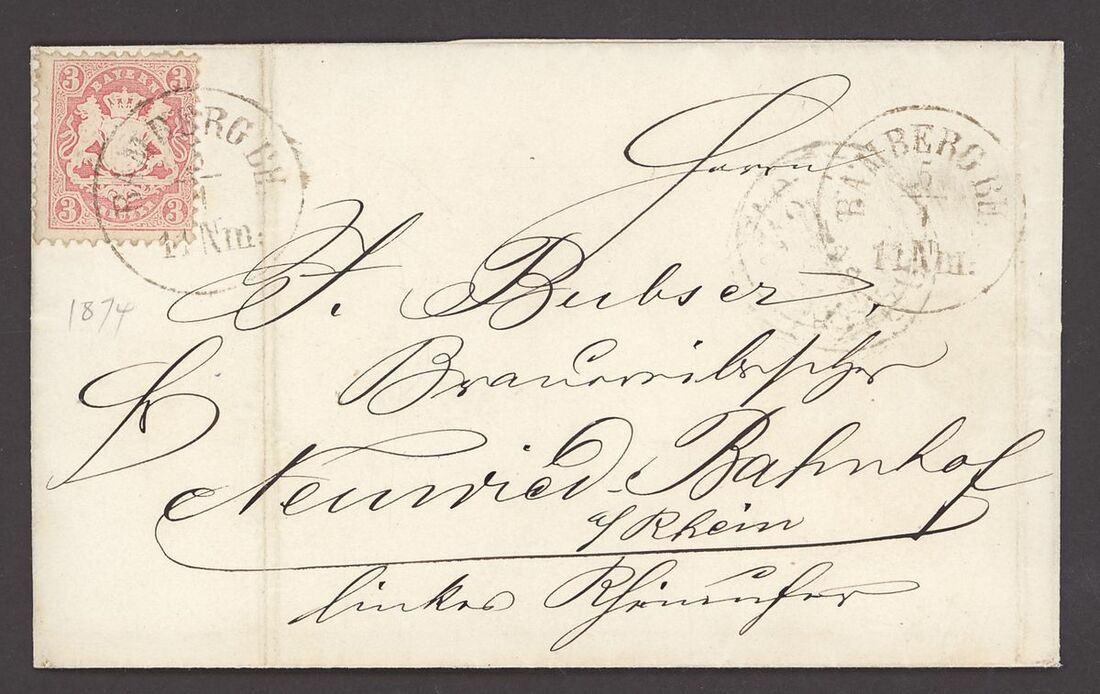 3 BAYERN 3
3 3
BAMBERG BH
5
1
11Nm:
BAMBERG BH
5
1
11Nm:
1874
Herrn
J. Bubser,
Brauereibesitzer
Fr
Neuwied-Bahnhof
a/ Rhein
linkes Rheinufer